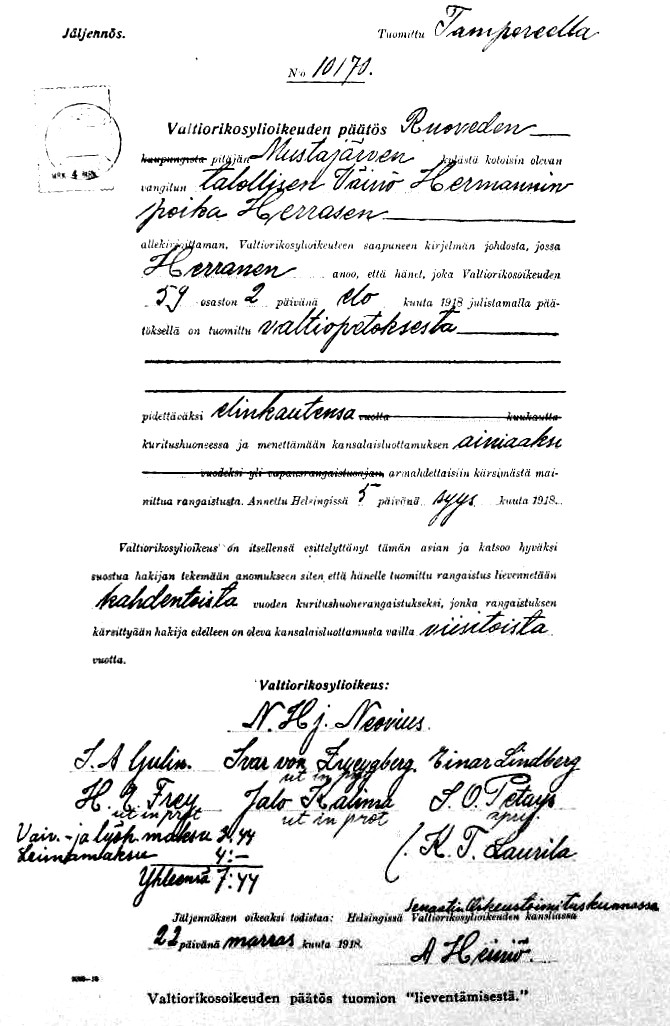 Jäljennös.
Tuomittu Tampereella
No 10170.
Valtiorikosylioikeuden päätös Ruoveden
kaupungista pitäjän Mustajärven kylästä kotoisin olevan
vangitun talollisen Väinö Hermannin
poika Herrasen
allekirjoittaman, Valtiorikosylioikeuteen saapuneen kirjelmän johdosta, jossa
Herranen anoo, että hänet, joka Valtiorikosoikeuden
59 osaston 2 päivänä elo kuuta 1918 julistamalla pää-
töksellä on tuomittu valtiopetoksesta
pidettäväksi elinkautensa vuotta kuukautta
kuritushuoneessa ja menettämään kansalaisluottamuksen ainiaaksi
vuodeksi yli vapausrangaistusajan, armahdettaisiin kärsimästä mai-
nittua rangaistusta. Annettu Helsingissä 5 päivänä syys kuuta 1918.
Valtiorikosylioikeus on itsellensä esittelyttänyt tämän asian ja katsoo hyväksi
suostua hakijan tekemään anomukseen siten että hänelle tuomittu rangaistus lievennetään
kahdentoista vuoden kuritushuonerangaistukseksi, jonka rangaistuksen
kärsittyään hakija edelleen on oleva kansalaisluottamusta vailla viisitoista
vuotta.
Valtiorikosylioikeus:
N. Hj. Neovius.
I. A Gulin. Ivar von Einar Lindberg
ut in prot
H. E. Frey Jalo Kalima S. O. Petays
ut in prot ut in prot
Vaiv.- ja lysk. maksu 3:44
Leimamaksu 4:—
Yhteensä 7:44
K. T. Laurila
Senaatin Oikeustoimituskunnassa
Jäljennöksen oikeaksi todistaa: Helsingissä Valtiorikosylioikeuden kansliassa
22 päivänä marras kuuta 1918.
A Heiniö.
Valtiorikosoikeuden päätös tuomion "lieventämisestä."